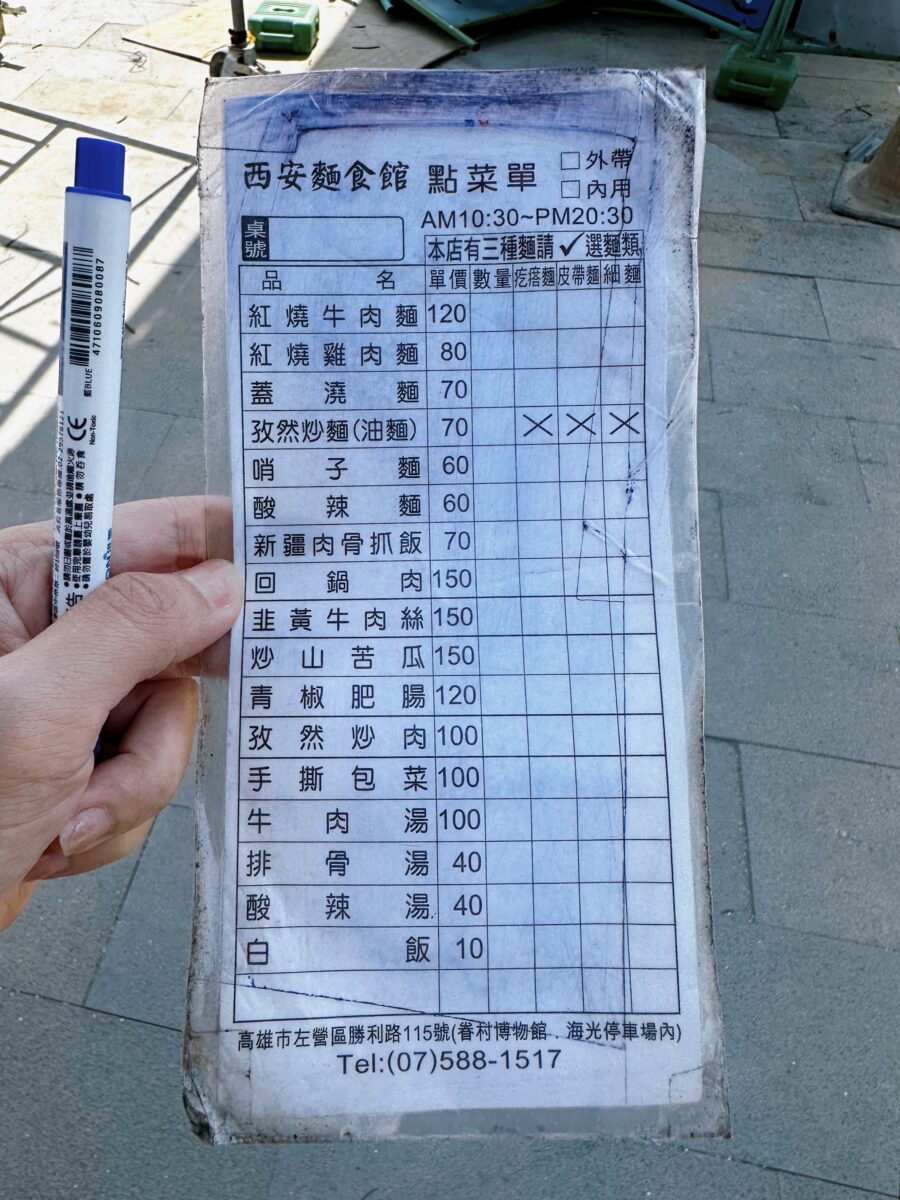 西安麵食館 點菜單
□外帶
□內用
AM10:30~PM20:30
桌號
本店有三種麵請✓選麵類
品名 單價 數量 疙瘩麵 皮帶麵 細麵
紅燒牛肉麵 120
紅燒雞肉麵 80
蓋澆麵 70
孜然炒麵(油麵) 70 ✕ ✕ ✕
哨子麵 60
酸辣麵 60
新疆肉骨抓飯 70
回鍋肉 150
韭黃牛肉絲 150
炒山苦瓜 150
青椒肥腸 120
孜然炒肉 100
手撕包菜 100
牛肉湯 100
排骨湯 40
酸辣湯 40
白飯 10
高雄市左營區勝利路115號(眷村博物館．海光停車場內)
Tel:(07)588-1517
4710609080087
藍BLUE
CE
Non-Toxic
●請勿日曬或於高溫處並請遠離火源
●使用完畢請蓋上筆蓋 ●請勿吞食
●請勿置於嬰幼兒易取處